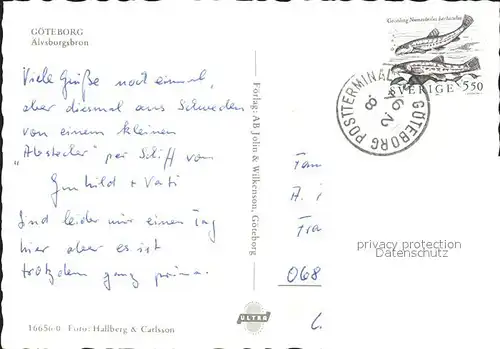 GÖTEBORG
Älvsborgsbron
Viele Grüße noch einmal,
aber diesmal aus Schweden
von einem kleinen
„Abstecher" per Schiff von
Gunhild + Vati
Sind leider nur einen Tag
hier aber es ist
trotzdem ganz prima.
16656-0 Foto: Hallberg & Carlsson
Förlag: AB Jolin & Wilkenson, Göteborg
ULTRA
SVERIGE 550
GÖTEBORG POSTTERMINAL
Fam
A.
068
privacy protection
Datenschutz